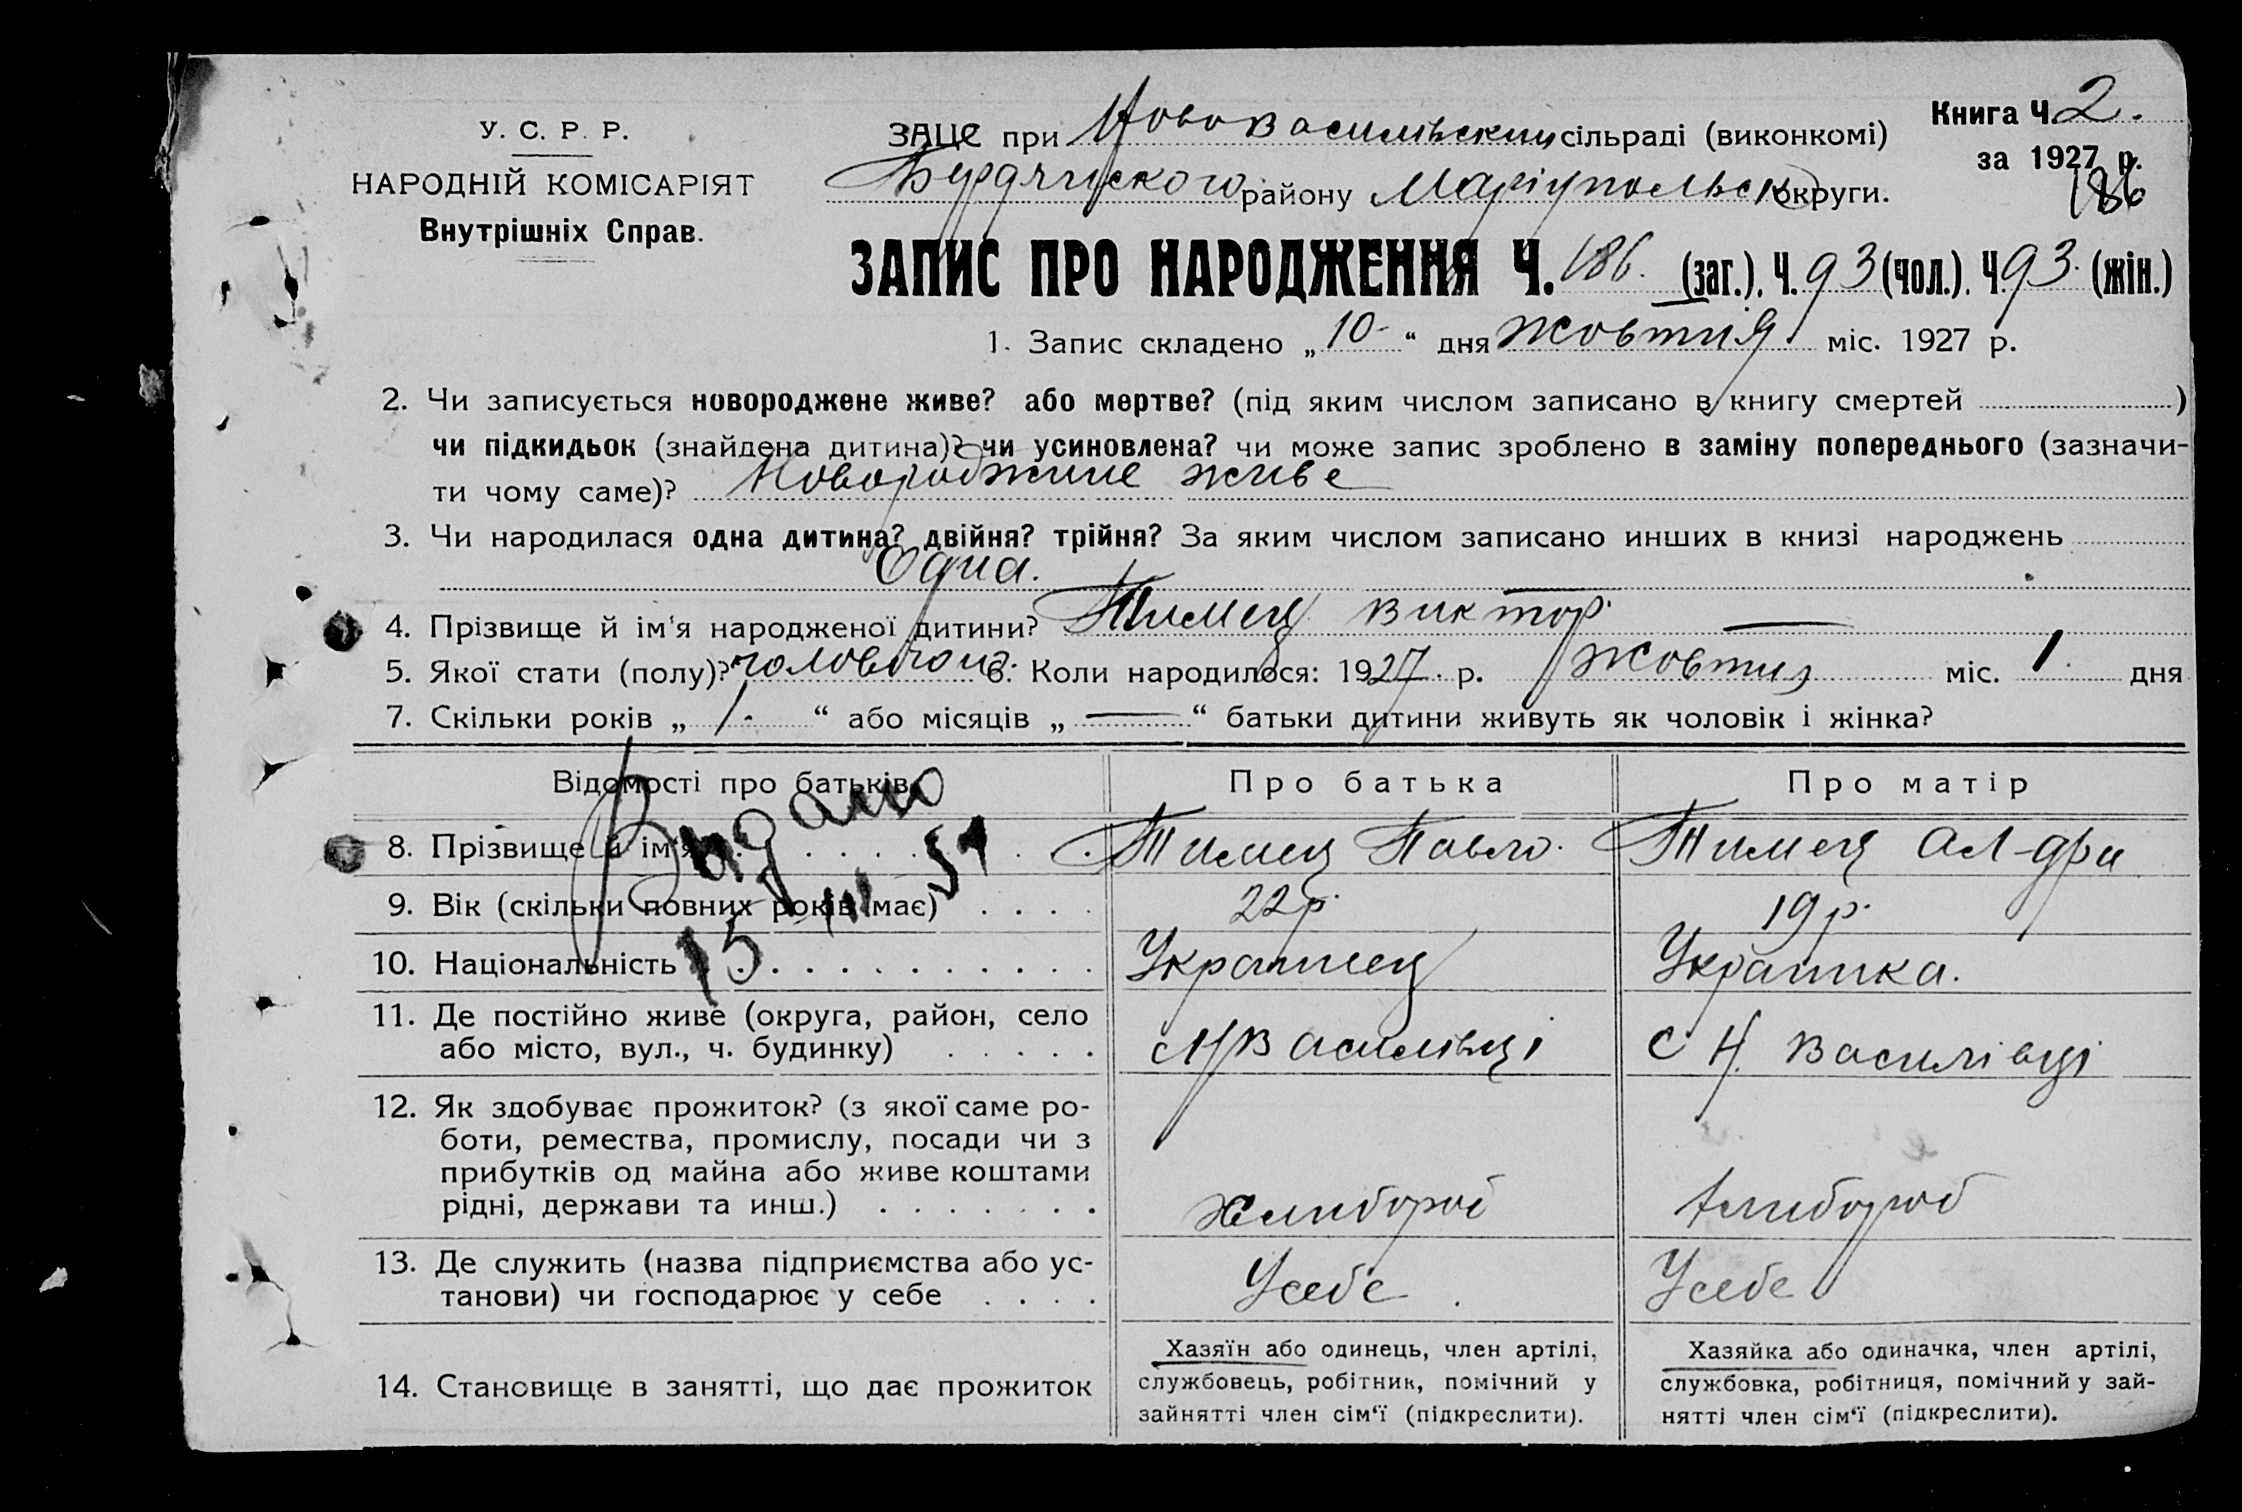 У. С. Р. Р.
НАРОДНІЙ КОМІСАРІЯТ
Внутрішніх Справ.
ЗАЦС при Нововасилівский сільраді (виконкомі)
Бердянского району Маріупольськ округи.
Книга Ч 2.
за 1927 р.
186
ЗАПИС ПРО НАРОДЖЕННЯ Ч. 186. (заг.). Ч. 93 (чол.). Ч. 93. (жін.)
1. Запис складено „ 10 “ дня жовтня міс. 1927 р.
2. Чи записується новороджене живе? або мертве? (під яким числом записано в книгу смертей )
чи підкидьок (знайдена дитина)? чи усиновлена? чи може запис зроблено в заміну попереднього (зазначи-
ти чому саме)? Новороджине живе
3. Чи народилася одна дитина? двійня? трійня? За яким числом записано инших в книзі народжень
Одна.
4. Прізвище й ім'я народженої дитини? Тимец Виктор.
5. Якої стати (полу)? чоловічоц. 6. Коли народилося: 1927. р. Жовтня міс. 1. дня
7. Скільки років „ 1. “ або місяців „ — “ батьки дитини живуть як чоловік і жінка?
Відомості про батьків Про батька Про матір
Выдано
15 III 54
8. Прізвище й ім'я Тимец Павло. Тимец Ал-дра
9. Вік (скільки повних років має) 22 р. 19 р.
10. Національність Украінец Украінка.
11. Де постійно живе (округа, район, село
або місто, вул., ч. будинку) с Н Василівці с Н. Василівці
12. Як здобуває прожиток? (з якої саме ро-
боти, ремества, промислу, посади чи з
прибутків од майна або живе коштами
рідні, держави та инш.) хлибороб хлибороб
13. Де служить (назва підприємства або ус-
танови) чи господарює у себе Усебе Усебе
14. Становище в занятті, що дає прожиток
Хазяїн або одинець, член артілі,
службовець, робітник, помічний у
зайнятті член сім‘ї (підкреслити).
Хазяйка або одиначка, член артілі,
службовка, робітниця, помічний у зай-
нятті член сім‘ї (підкреслити).